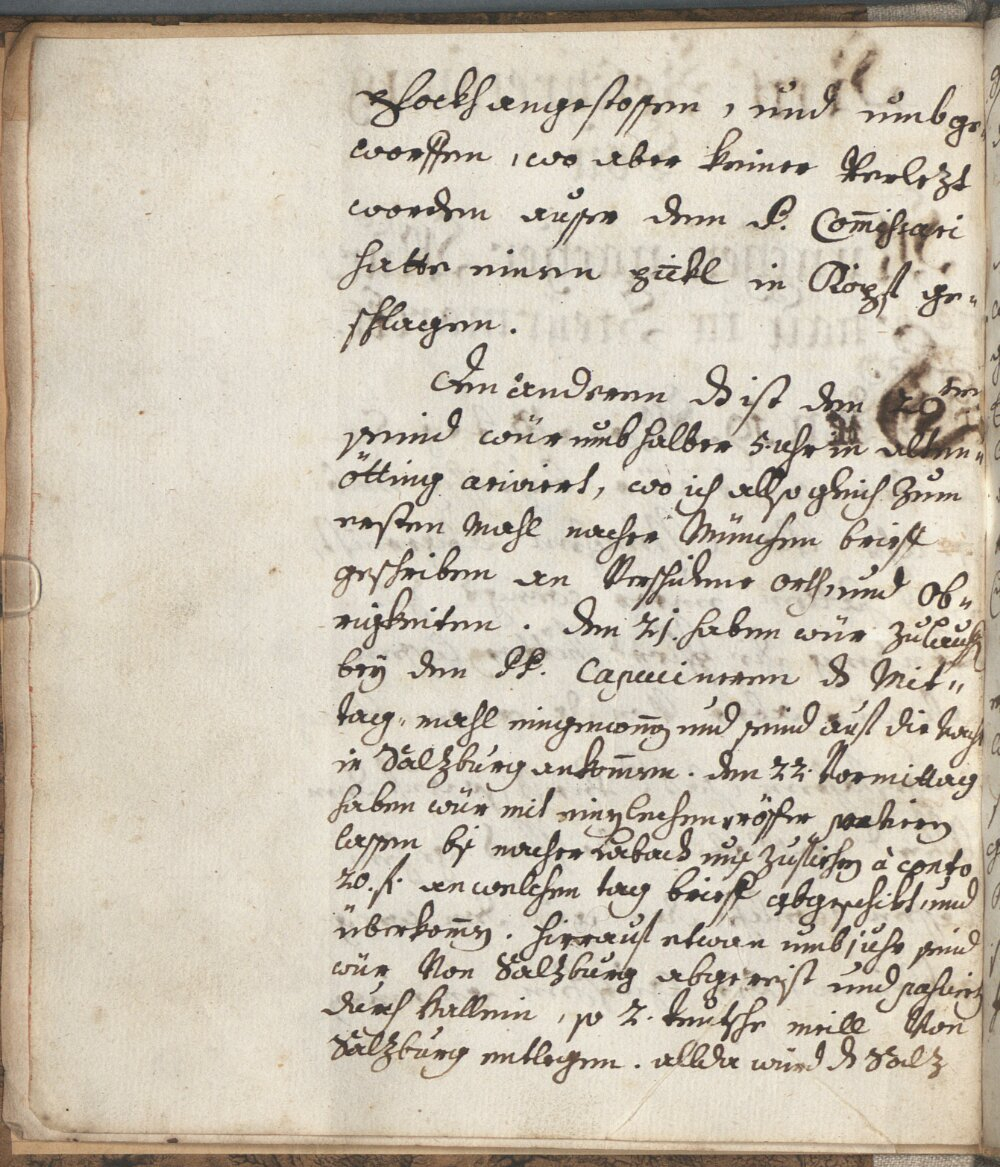 stockh angestossen, und umbge„
worffen, wo aber keiner Verlezt
worden ausser dem P. Com̄issari
hatte einen pückl in Kopf ge„
schlagen.
Am anderen ds ist den 20ten
seind wür umb halber 5 uhr in alten„
ötting ariviert, wo ich allsogleich zum
ersten Mahl nacher München brieff
geschriben an Verschidene orth und Ob„
rigkeiten. den 21. haben wür zu lauffen
bey den PP. Capucineren ds Mit„
tag„mahl eingenom̄en und seind auf die nacht
in Saltzburg ankom̄en. den 22. Vormittag
haben wür mit lassen
lassen bis nacher Labach à conto
20. f. an welchen tag brieff abgeschikt, und
überkom̄en. hierauf etwan umb 1 uhr seind
wür Von Saltzburg abgereist und passiert
durch Hallein, so 2. teutsche meill Von
Saltzburg entlegen. allda würd ds Saltz